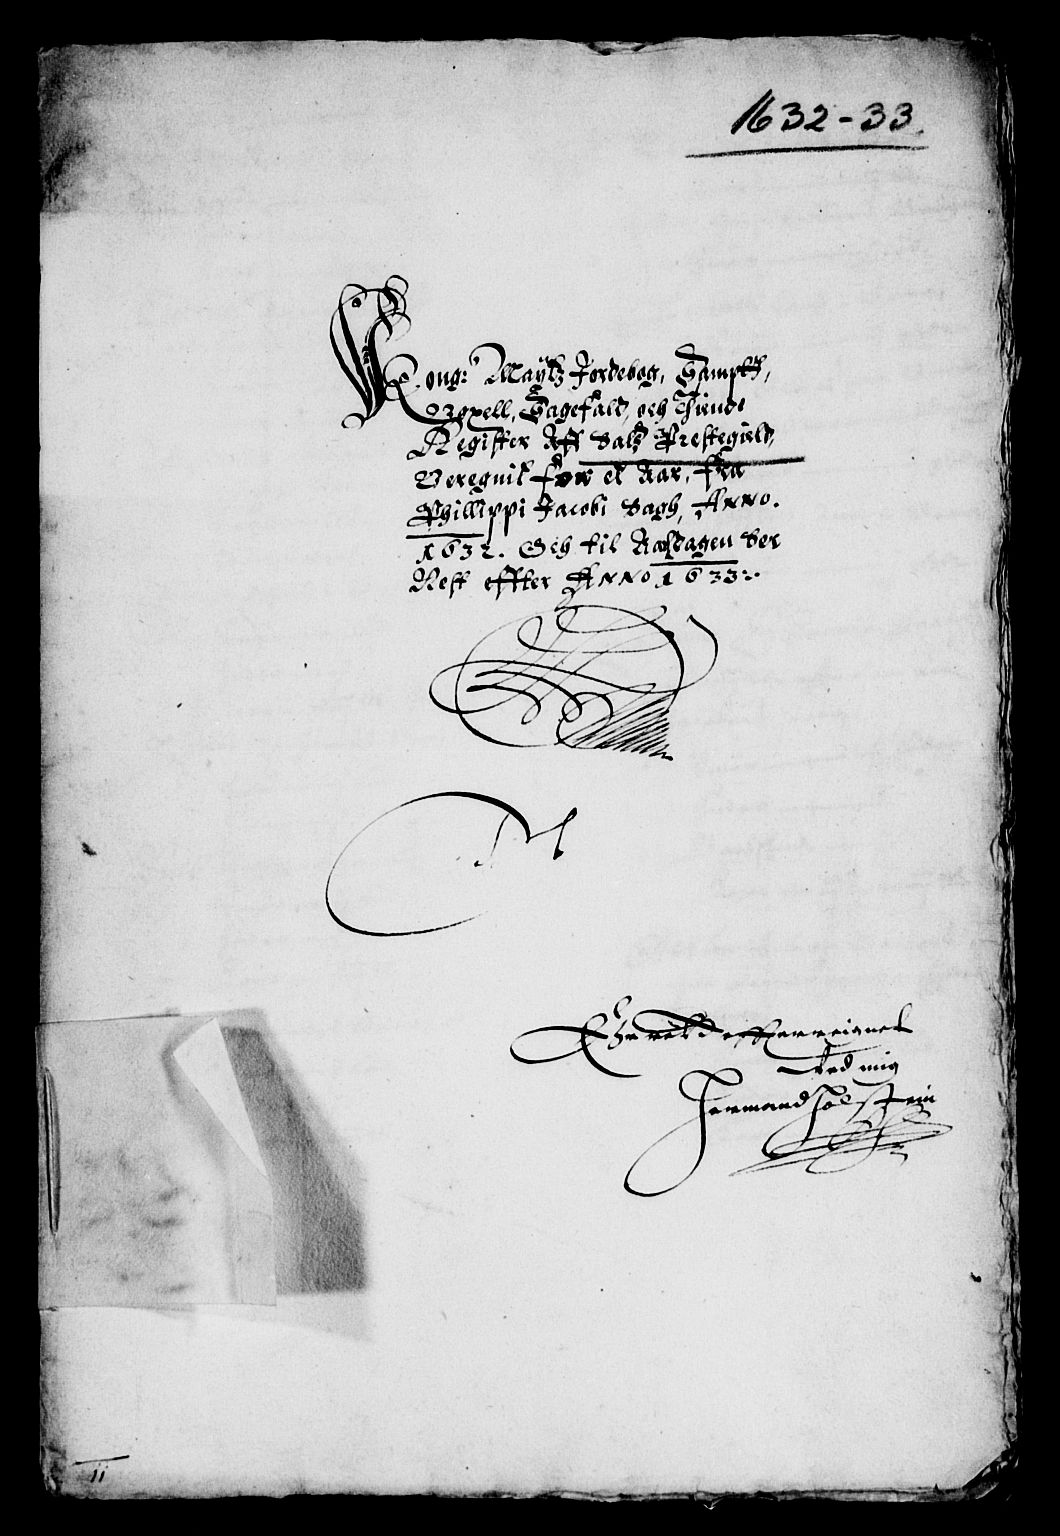 1632-33.
Kong: Maytz Jordebog, Sampt
Sagefald, och Tiende
Register Aff Dals Prestegield,
Beregnit for et Aar, fra
Phillippi Jacobi Dagh, Anno.
1632. Och til Aarsdagen der
Nest effter Anno 1633
ved mig
Hermand Holstein
11